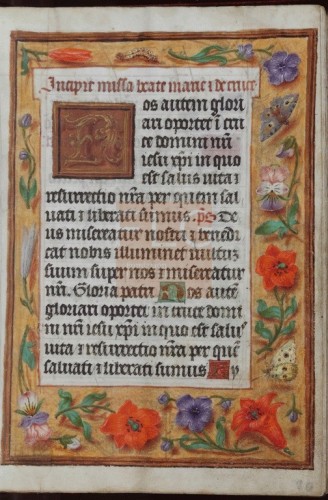 Incipit missa beate marie & de cruce
os autem glori
ari oportet ĩ cru
ce domini nr̃i
iesu xp̃i in quo
est salus uita &
resurrectio nr̃a per quem sal
uati & liberati sumus. ps̃ De
us misereatur nostri & benedi
cat nobis illuminet uultuz
suum super nos & misereatur
nr̃i. Gloria patri Nos autẽ
gloriari oportet in cruce domi
ni nr̃i iesu xp̃i in quo est salꝰ
uita & resurrectio nr̃a per quẽ
saluati & liberati sumus ky